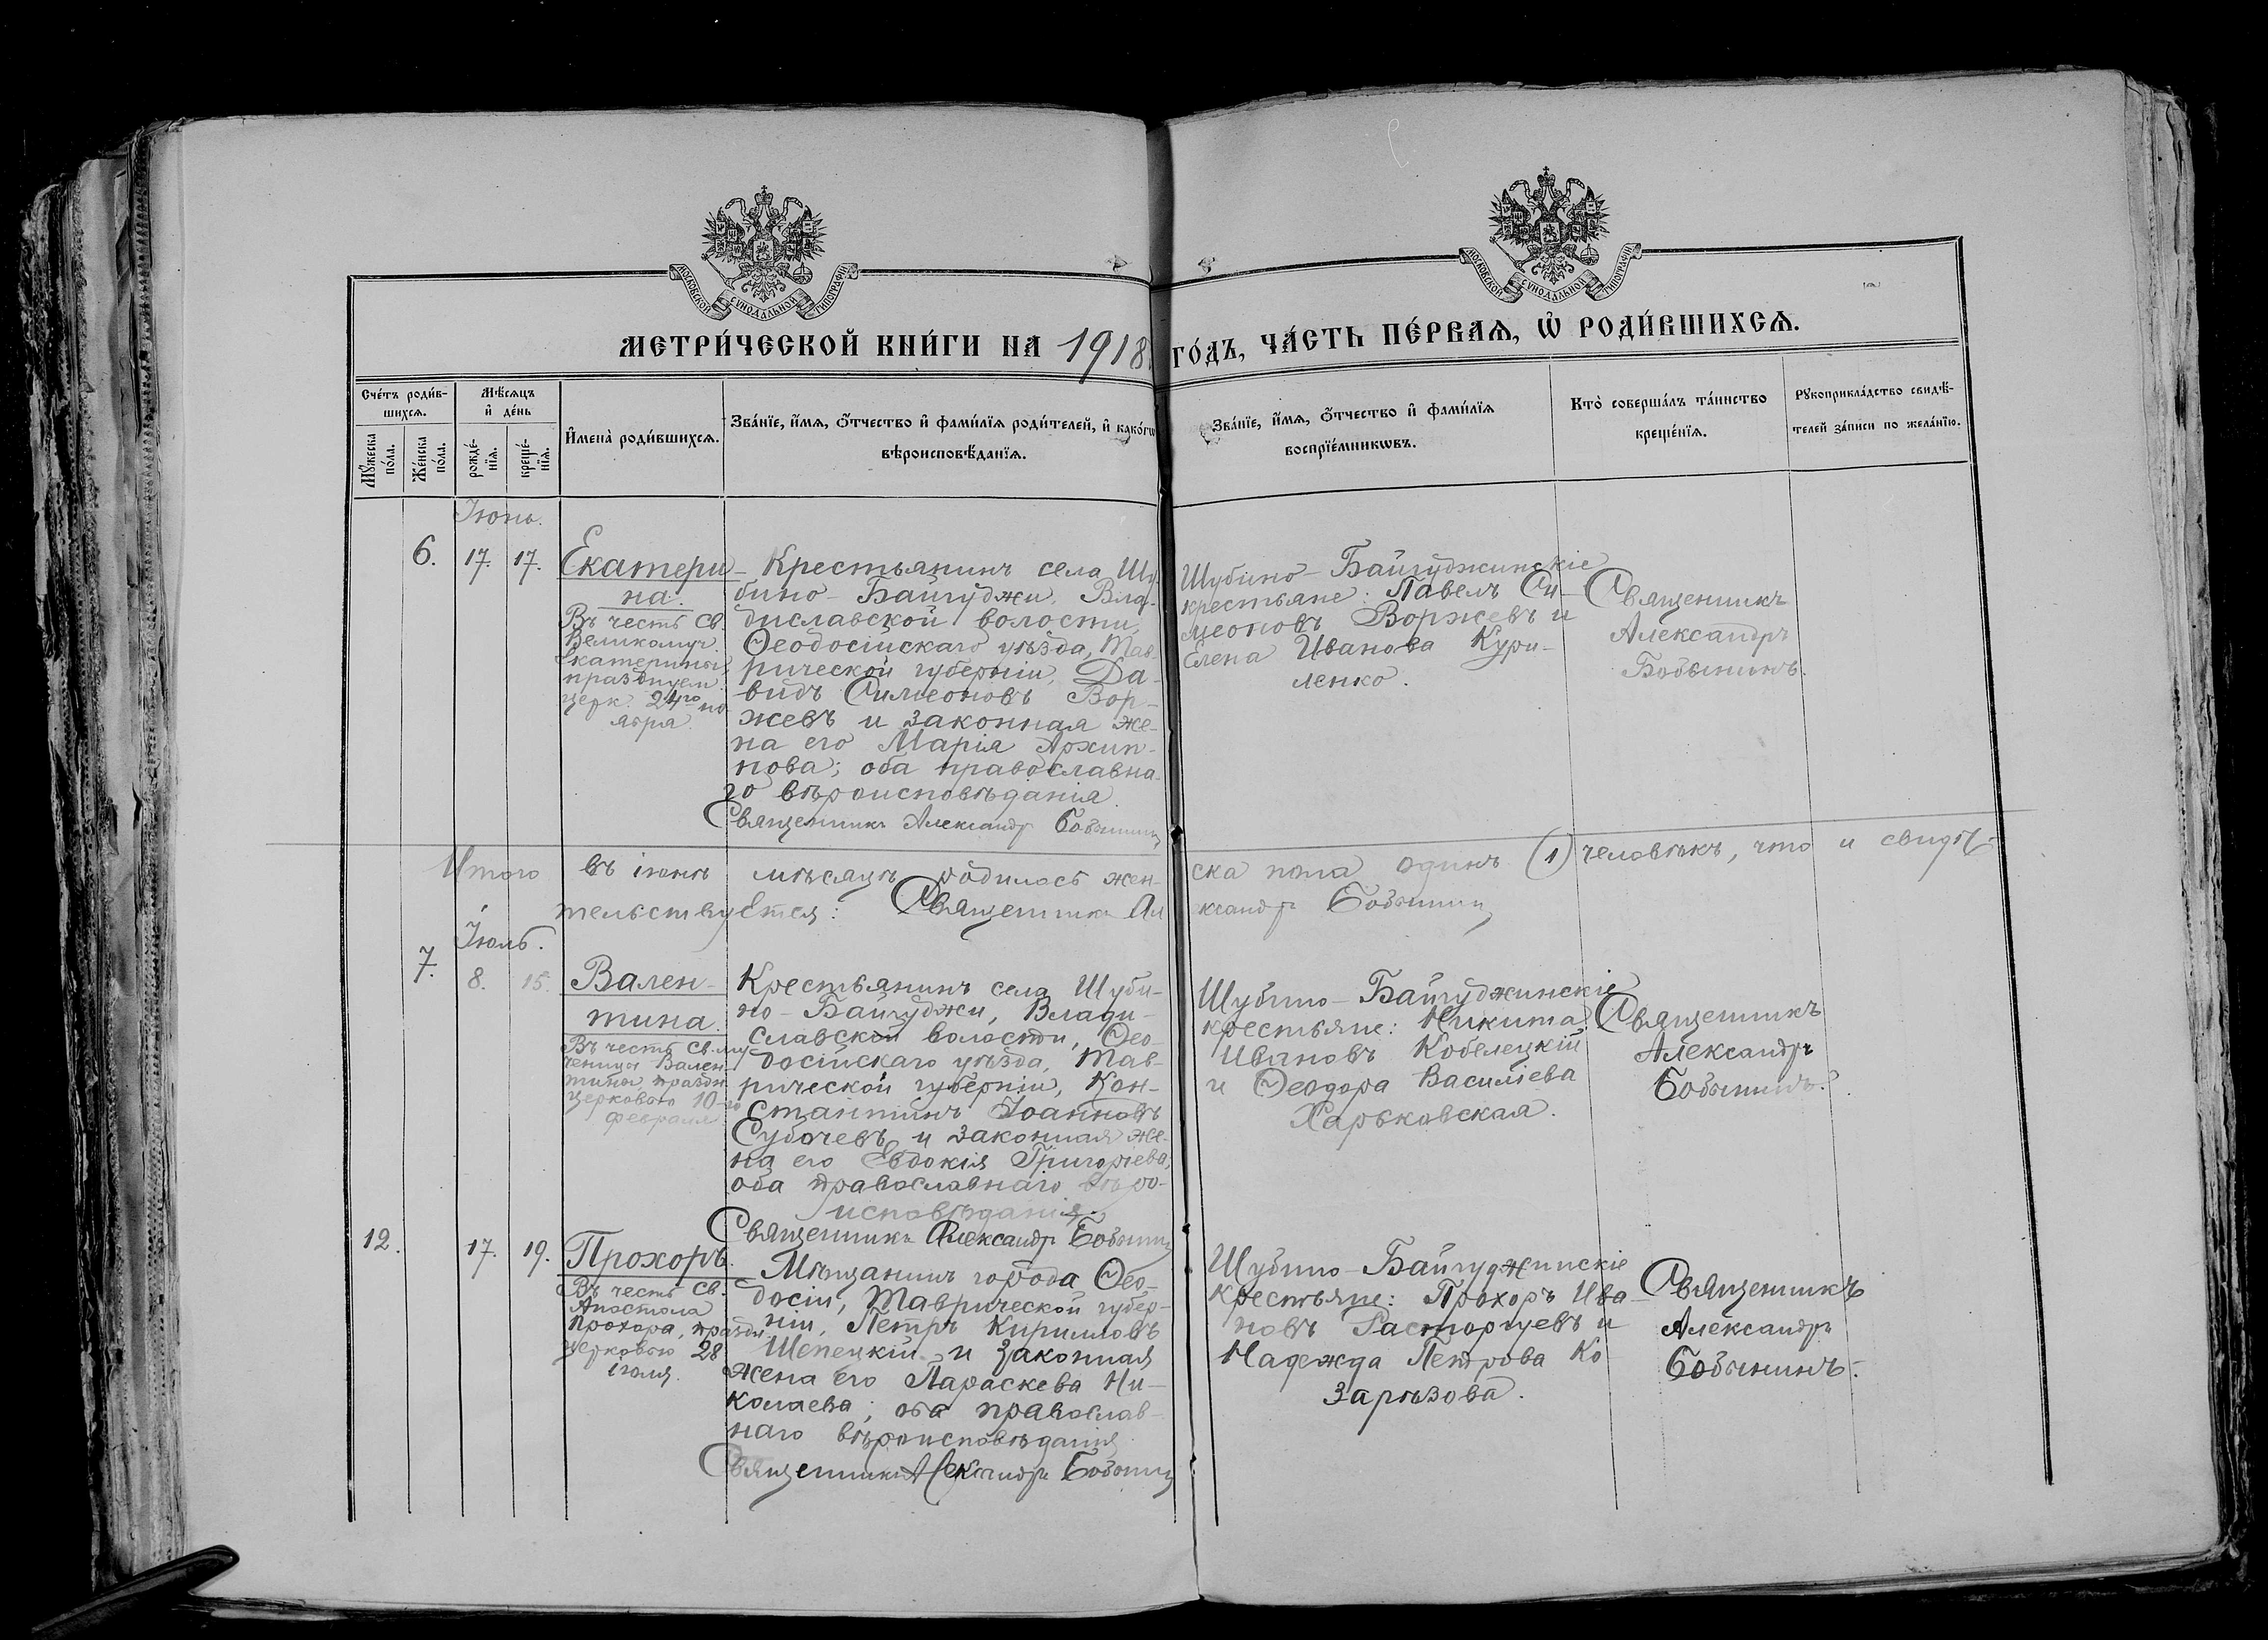 МОСКОВСКОЙ СѴНОДАЛЬНОЙ ТИПОГРАФІИ
МОСКОВСКОЙ СѴНОДАЛЬНОЙ ТИПОГРАФІИ
МЕТРИ́ЧЕСКОЙ КНИ́ГИ НА 1918 ГО́ДЪ, ЧА́СТЬ ПЕ́РВАѦ, Ѿ РОДИ́ВШИХСѦ.
Счетъ роди́в-
шихсѧ.
Мꙋжеска по́ла.
Же́нска по́ла.
Мѣ́сѧцъ
и҆ де́нь
рожде́-
нїѧ.
креще́-
нїѧ.
И҆мена̀ роди́вшихсѧ.
Зва́нїе, и҆́мѧ, ѻ҆́тчество и҆ фами́лїѧ роди́телей, и҆ како́гѡ
вѣроисповѣ́данїѧ.
Зва́нїе, и҆́мѧ, ѻ҆́тчество и҆ фами́лїѧ
воспрїе́мникѡвъ.
Кто̀ соверша́лъ та́инство
креще́нїѧ.
Рꙋкоприкла́дство свидѣ́-
телей за́писи по жела́нїю.
Іюнь.
6. 17. 17.
Екатери-
на.
Въ честь Св.
Великомуч.
Екатерины,
празднуем.
церк. 24го но
ября.
Крестьянинъ села Шу-
бино-Байгуджи, Вла-
диславской волости,
Ѳеодосійскаго уѣзда, Тав-
рической губерніи, Да-
видъ Симеоновъ Вор-
жевъ и законная же-
на его Марія Архип-
пова; оба православна-
го вѣроисповѣданія.
Священникъ Александръ Бобынинъ
Шубино-Байгуджинскіе
крестьяне: Павелъ Си-
меоновъ Воржевъ и
Елена Иванова Кури-
ленко.
Священникъ
Александръ
Бобынинъ.
Итого въ іюнѣ мѣсяцѣ родилось жен-
ска пола одинъ (1) человѣкъ, что и свидѣ-
тельствуется: Священникъ Але
ксандръ Бобынинъ
Іюль.
7. 8. 15.
Вален-
тина.
Въ честь Св. му
ченицы Вален-
тины, праздн.
церковью 10-го
февраля
Крестьянинъ села Шуби-
но-Байгуджи, Влади-
славской волости, Ѳео-
досійскаго уѣзда, Тав-
рической губерніи, Кон-
стантинъ Іоанновъ
Субочевъ и законная же-
на его Евдокія Григорьева,
оба православнаго вѣро-
исповѣданія
Священникъ Александръ Бобынинъ
Шубино-Байгуджинскіе
крестьяне: Никита
Ивановъ Кобелецкій
и Ѳеодора Василіева
Харьковская.
Священникъ
Александръ
Бобынинъ.
12. 17. 19.
Прохоръ.
Въ честь Св.
Апостола
Прохора, праздн.
церковью 28
іюля.
Мѣщанинъ города Ѳео-
досіи, Таврической губер-
ніи, Петръ Кирилловъ
Шепецкій и законная
жена его Параскева Ни-
колаева; оба православ-
наго вѣроисповѣданія
Священникъ Александръ Бобынинъ
Шубино-Байгуджинскіе
крестьяне: Прохоръ Ива-
новъ Расторгуевъ и
Надежда Петрова Ко
зарѣзова.
Священникъ
Александръ
Бобынинъ.